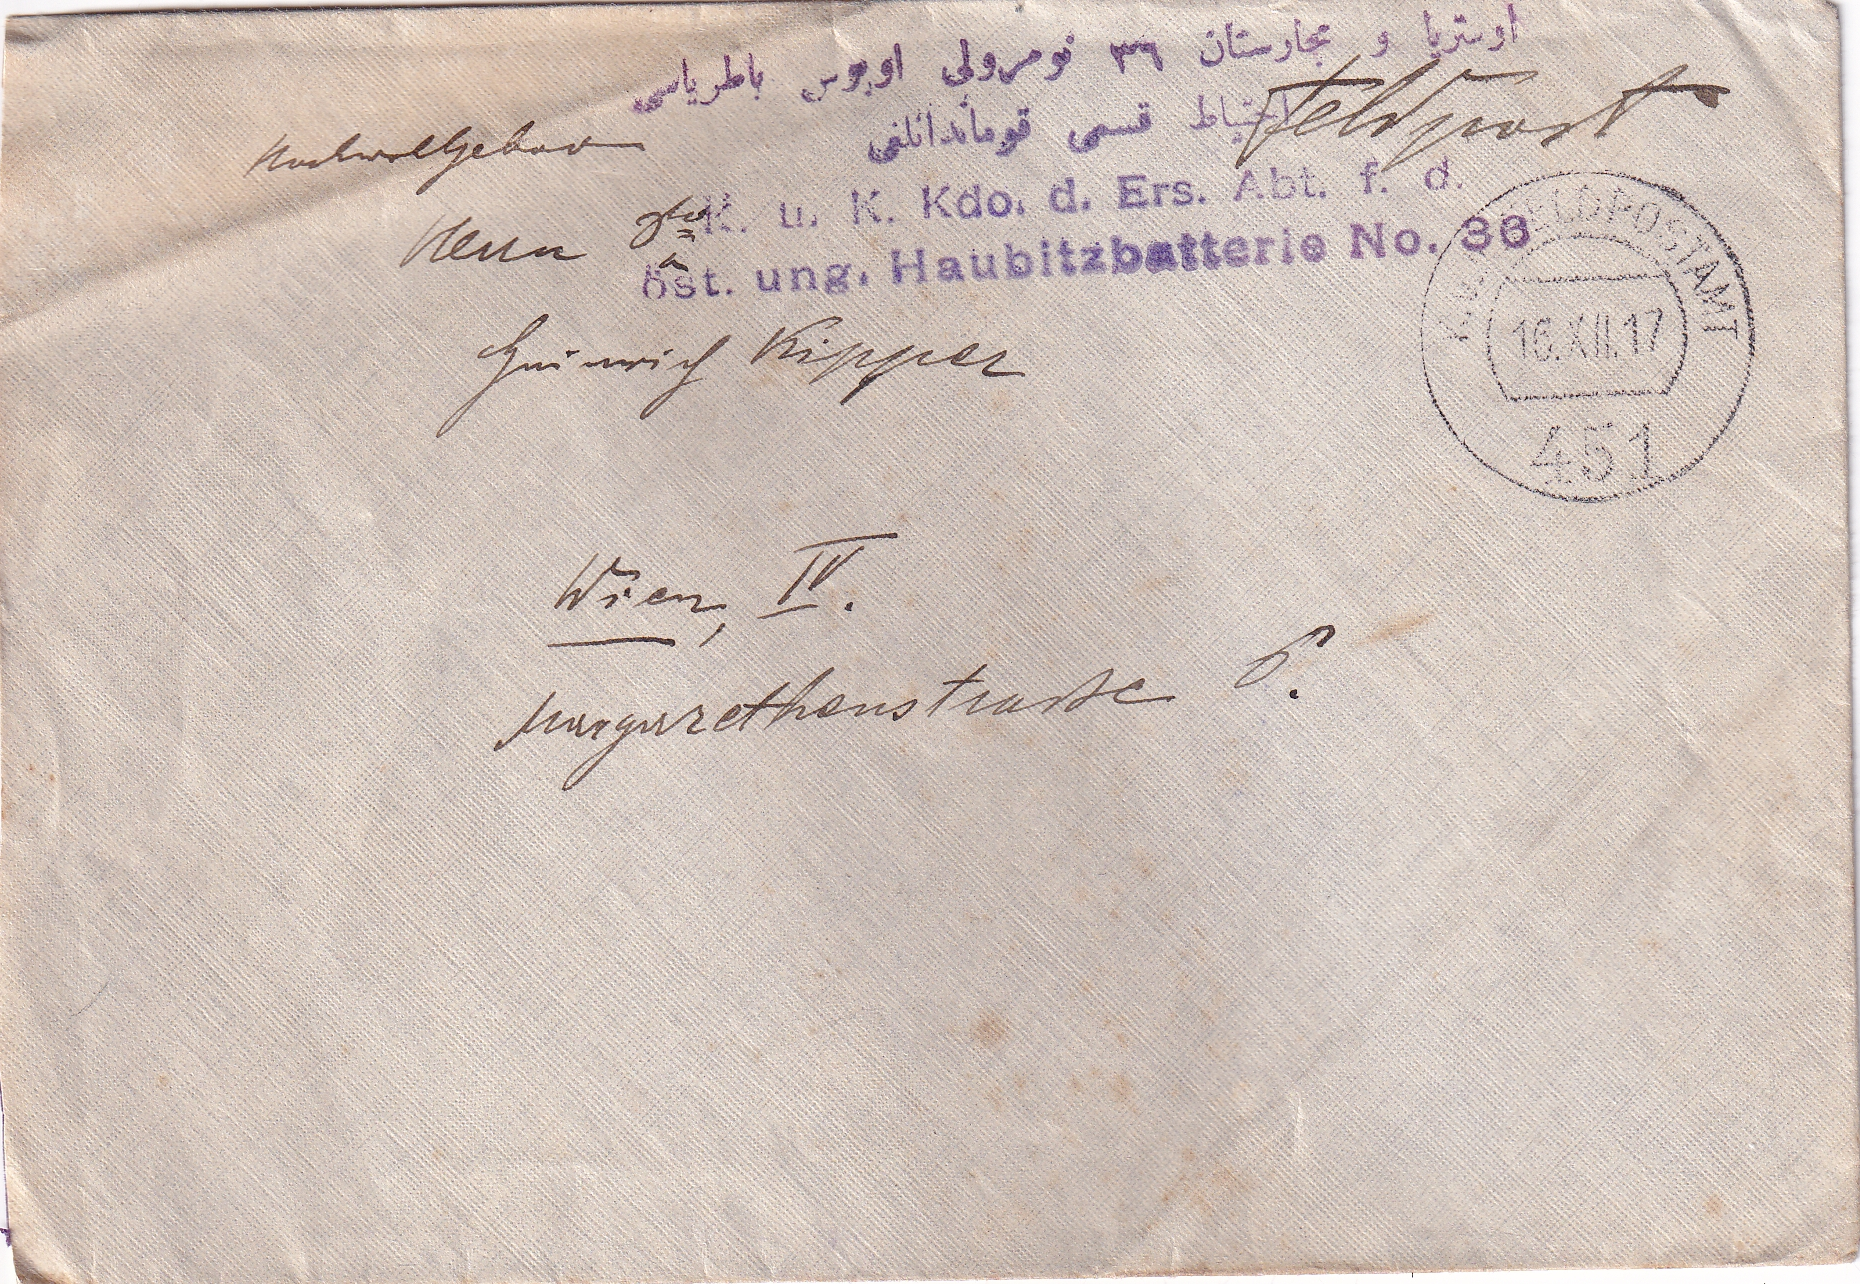 اوستريا و مجارستان ٣٦ نومرولى اوبوس باطرياسى
احتياط قسمى قوماندانلغى
Feldpost
Hochwolgeboren
K. u. K. Kdo. d. Ers. Abt. f. d.
Herrn
öst. ung. Haubitzbatterie No. 36
K.u.K. FELDPOSTAMT
16.XII.17
451
Heinrich Kipper
Wien, IV.
Margarethenstraße